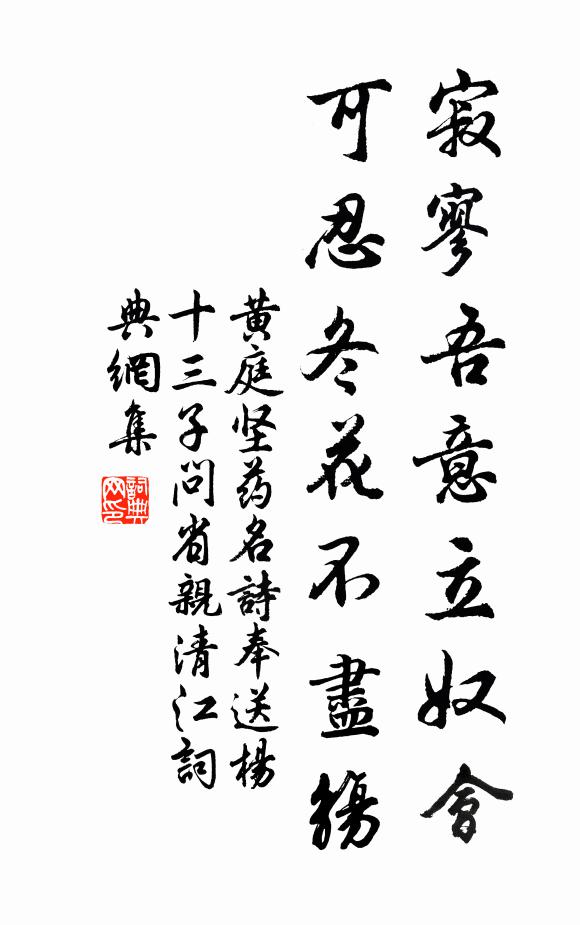 寂寥吾意立奴會
可忍冬花不盡觴
黃庭坚药名詩奉送楊
十三子問省親清江詞
典網集
詞典
网印